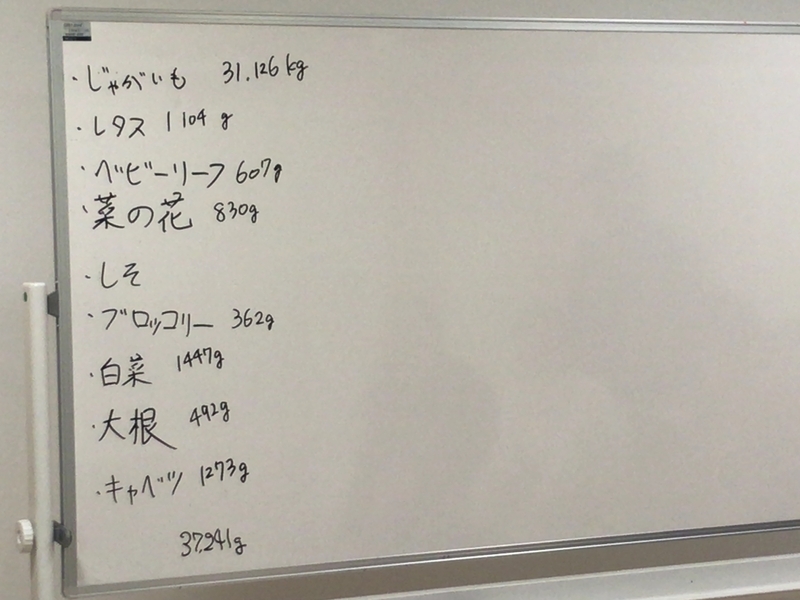 ・じゃがいも 31.126kg
・レタス 1104g
・ベビーリーフ 607g
・菜の花 830g
・しそ
・ブロッコリー 362g
・白菜 1447g
・大根 492g
・キャベツ 1273g
37,241g